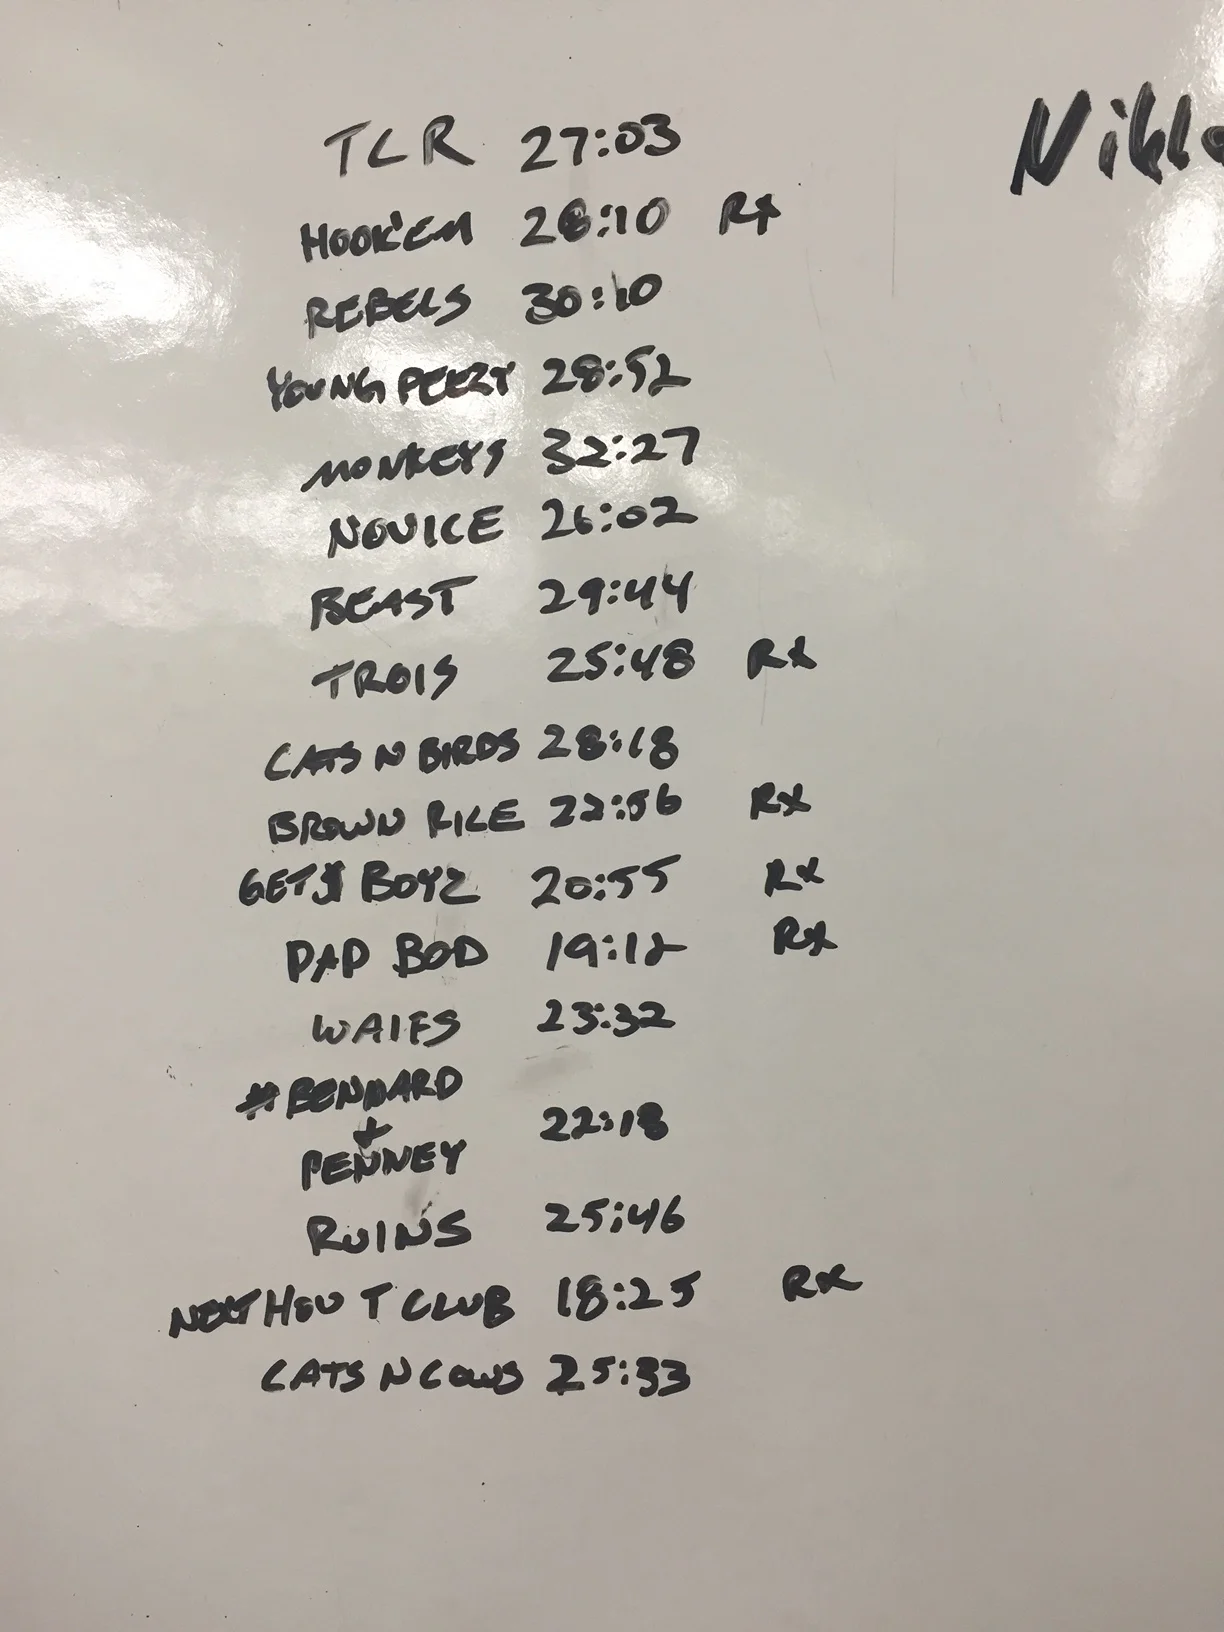 TCR 27:03
HOOK'EM 28:10 Rx
REBELS 30:10
YOUNG PEEZY 28:52
MONKEYS 32:27
NOVICE 26:02
BEAST 29:44
TROIS 25:48 Rx
CATS N BIRDS 28:18
BROWN RICE 22:56 Rx
GET$ BOYZ 20:55 Rx
DAD BOD 19:12 Rx
WAIFS 23:32
#BENNARD
+ 22:18
PENNEY
RUINS 25:46
NEXT HOU T CLUB 18:25 Rx
CATS N COWS 25:33